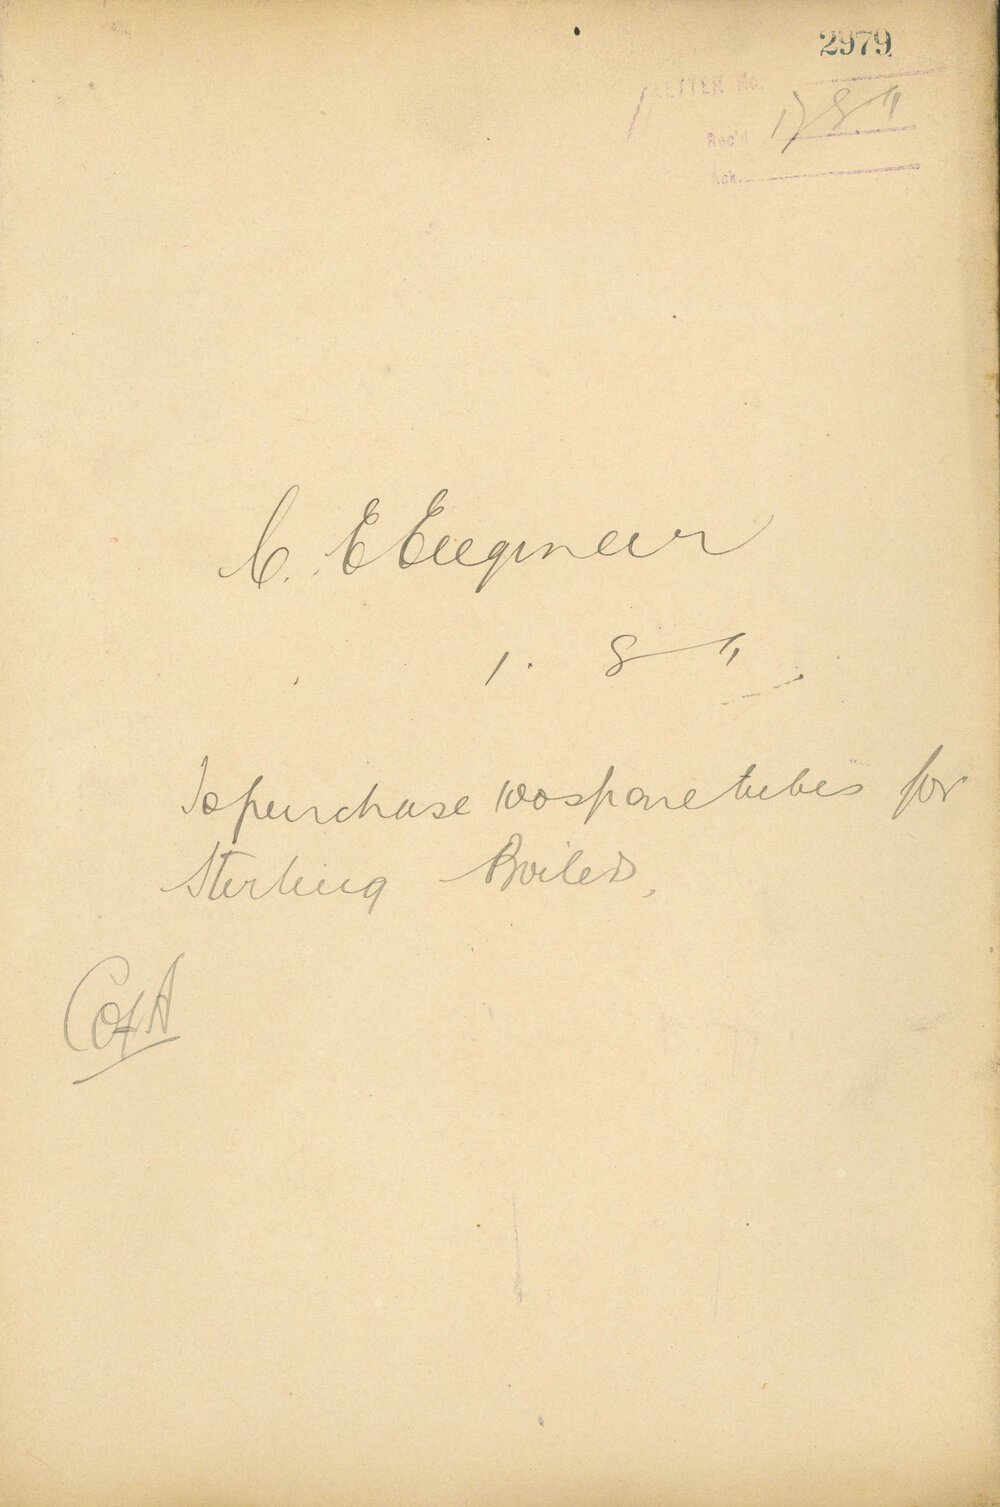 2979
LETTER No.
Rec'd 1/8 - 11
Ack.
C. E Engineer
1. 8 - 11
To purchase 100 spare tubes for
Sterling Boilers.
C of A